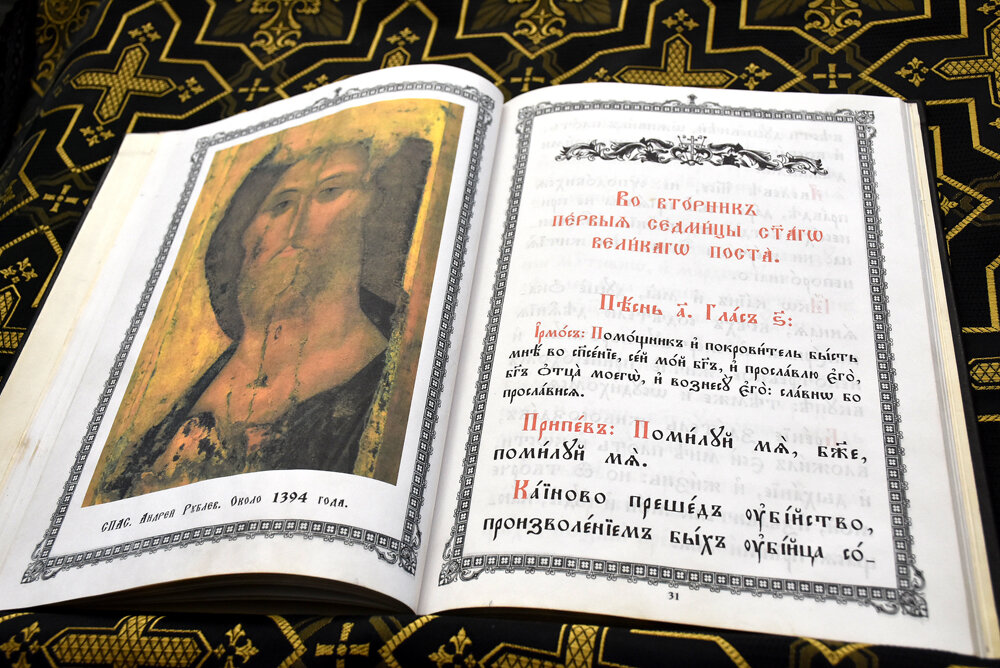 СПАС. Андрей Рублев. Около 1394 года.
Во вто́рникъ
пе́рвыѧ седми́цы ст҃а́гѡ
вели́кагѡ поста̀.
Пѣ́снь а҃. Гла́съ ѕ҃:
І҆рмо́съ: Помо́щникъ и҆ покрови́тель бы́сть
мнѣ̀ во сп҃се́нїе, се́й мо́й бг҃ъ, и҆ просла́влю є҆го̀,
бг҃ъ ѻ҆тца̀ моегѡ̀, и҆ вознесꙋ̀ є҆го̀: сла́внѡ бо
просла́висѧ.
Припѣ́въ: Поми́лꙋй мѧ̀, бж҃е,
поми́лꙋй мѧ̀.
Ка́їново преше́дъ ᲂу҆бі́йство,
произволе́нїемъ бы́хъ ᲂу҆бі́йца со́-
31